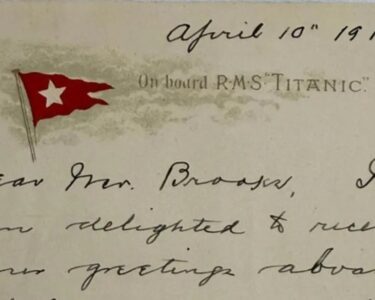 April 10" 191
On board R·M·S "TITANIC".
ear Mr. Brooks, I
m delighted to rece
our greetings aboa